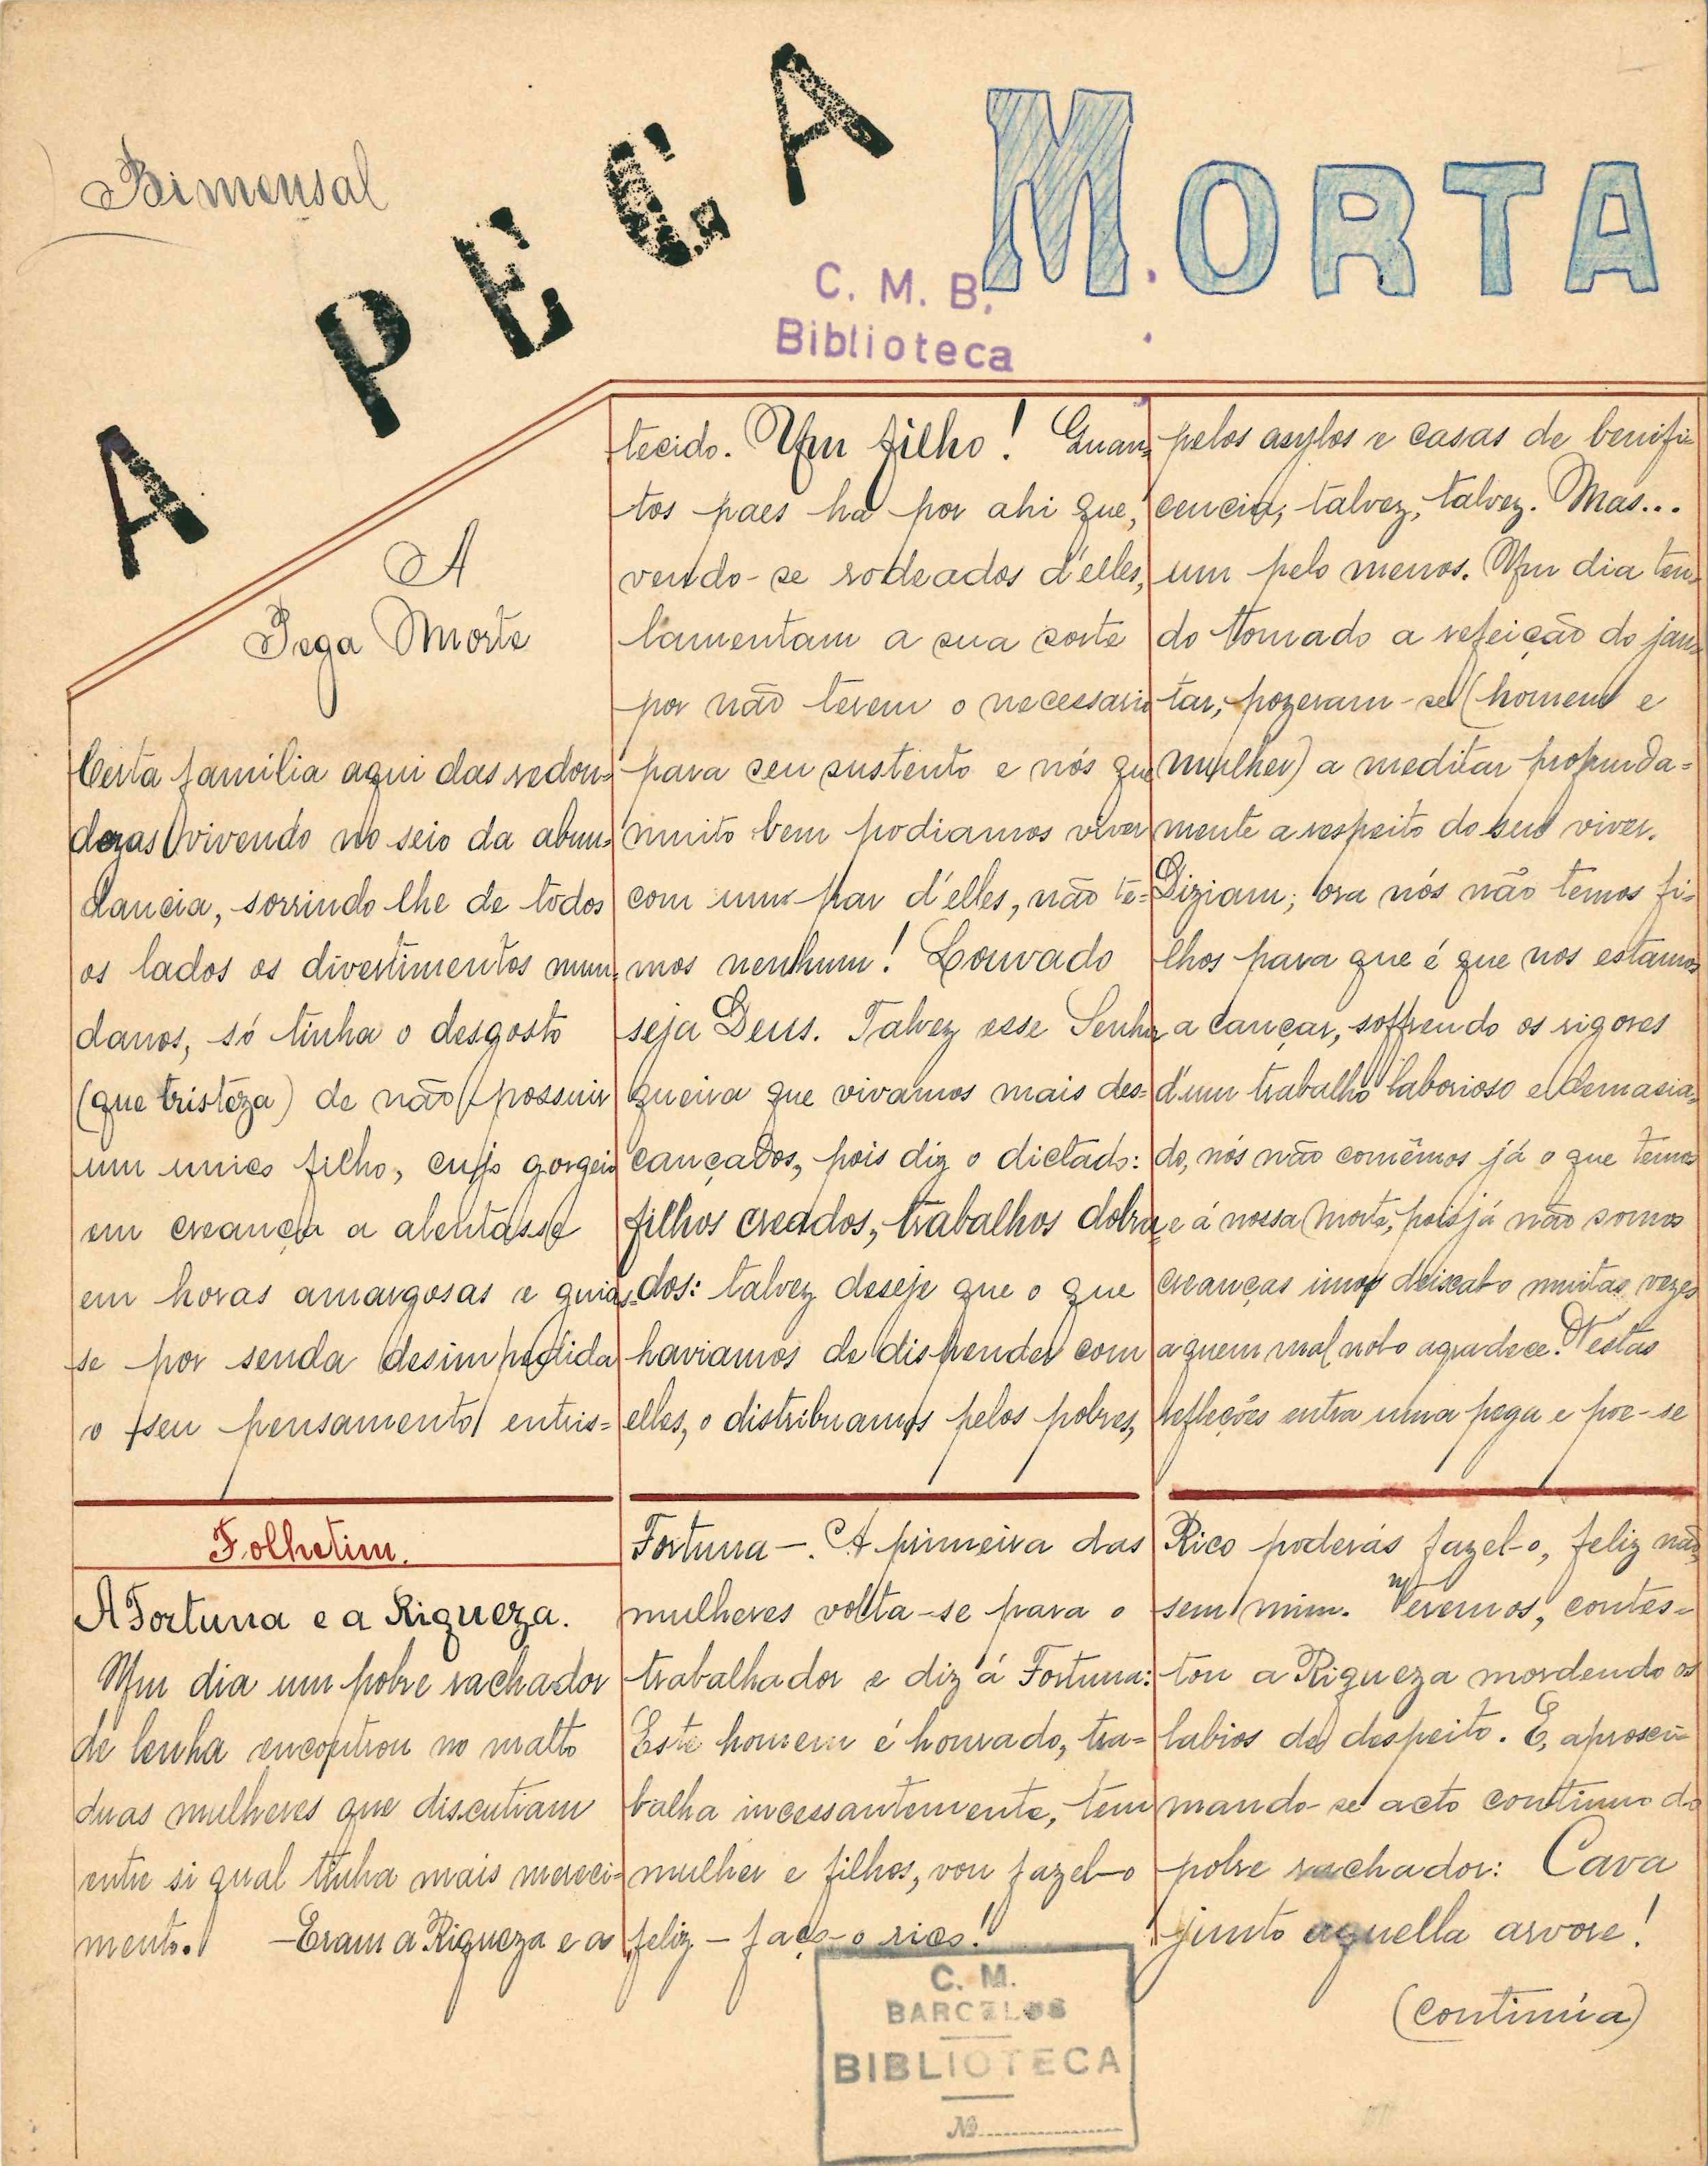 Bimensal
A PEGA MORTA
C. M. B.
Biblioteca
A
Pega Morte
Certa familia aqui das redon=
dezas vivendo no seio da abun=
dancia, sorrindo lhe de todos
os lados os divertimentos mun=
danos, só tinha o desgosto
(que tristeza) de não possuir
um unico filho, cujo gorgeio
em creança a alentasse
em horas amargosas e guias=
se por senda desimpedida
o seu pensamento entris=
tecido. Um filho! Quan=
tos paes ha por ahi que,
vendo-se rodeados d'elles,
lamentam a sua sorte
por não terem o necessario
para seu sustento e nós que
muito bem podiamos viver
com um par d'elles, não te=
mos nenhum! Louvado
seja Deus. Talvez esse Senhor
queira que vivamos mais des=
cançados, pois diz o dictado:
filhos creados, trabalhos dobra=
dos: talvez deseje que o que
haviamos de dispender com
elles, o distribuamos pelos pobres,
pelos asylos e casas de benifi=
cencia, talvez, talvez. Mas...
um pelo menos. Um dia ten=
do tomado a refeição do jan=
tar, pozeram-se (homem e
mulher) a meditar profunda=
mente a respeito do seu viver.
Diziam; ora nós não temos fi=
lhos para que é que nos estamos
a cançar, soffrendo os rigores
d'um trabalho laborioso e demasia=
do, nós não comêmos já o que temos
e á nossa morte, pois já não somos
creanças imos deixal-o muitas vezes
a quem mal nol-o agradece. Nestas
refleções entra uma pega e poe-se
Folhetim.
A Fortuna e a Riqueza.
Um dia um pobre rachador
de lenha encontrou no matto
duas mulheres que discutiam
entre si qual tinha mais mereci=
mento. —Eram a Riqueza e a
Fortuna—. A primeira das
mulheres volta-se para o
trabalhador e diz á Fortuna:
Este homem é honrado, tra=
balha incessantemente, tem
mulher e filhos, vou fazel-o
feliz — faço-o rico!
Rico poderás fazel-o, feliz não
sem mim. Veremos, contes=
tou a Riqueza mordendo os
labios de despeito. E, aproxi=
mando-se acto continuo do
pobre rachador: Cava
junto aquella arvore!
(continúa)
C. M.
BARCELOS
BIBLIOTECA
Nº